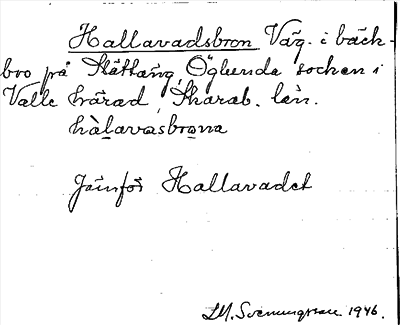 Hallavadsbron Väg. i bäck-
bro på Slättäng, Öglunda socken i
Valle härad, Skarab. län.
hàlavasbrona
Jämför Hallavadet
LM. Svenungsson 1946.